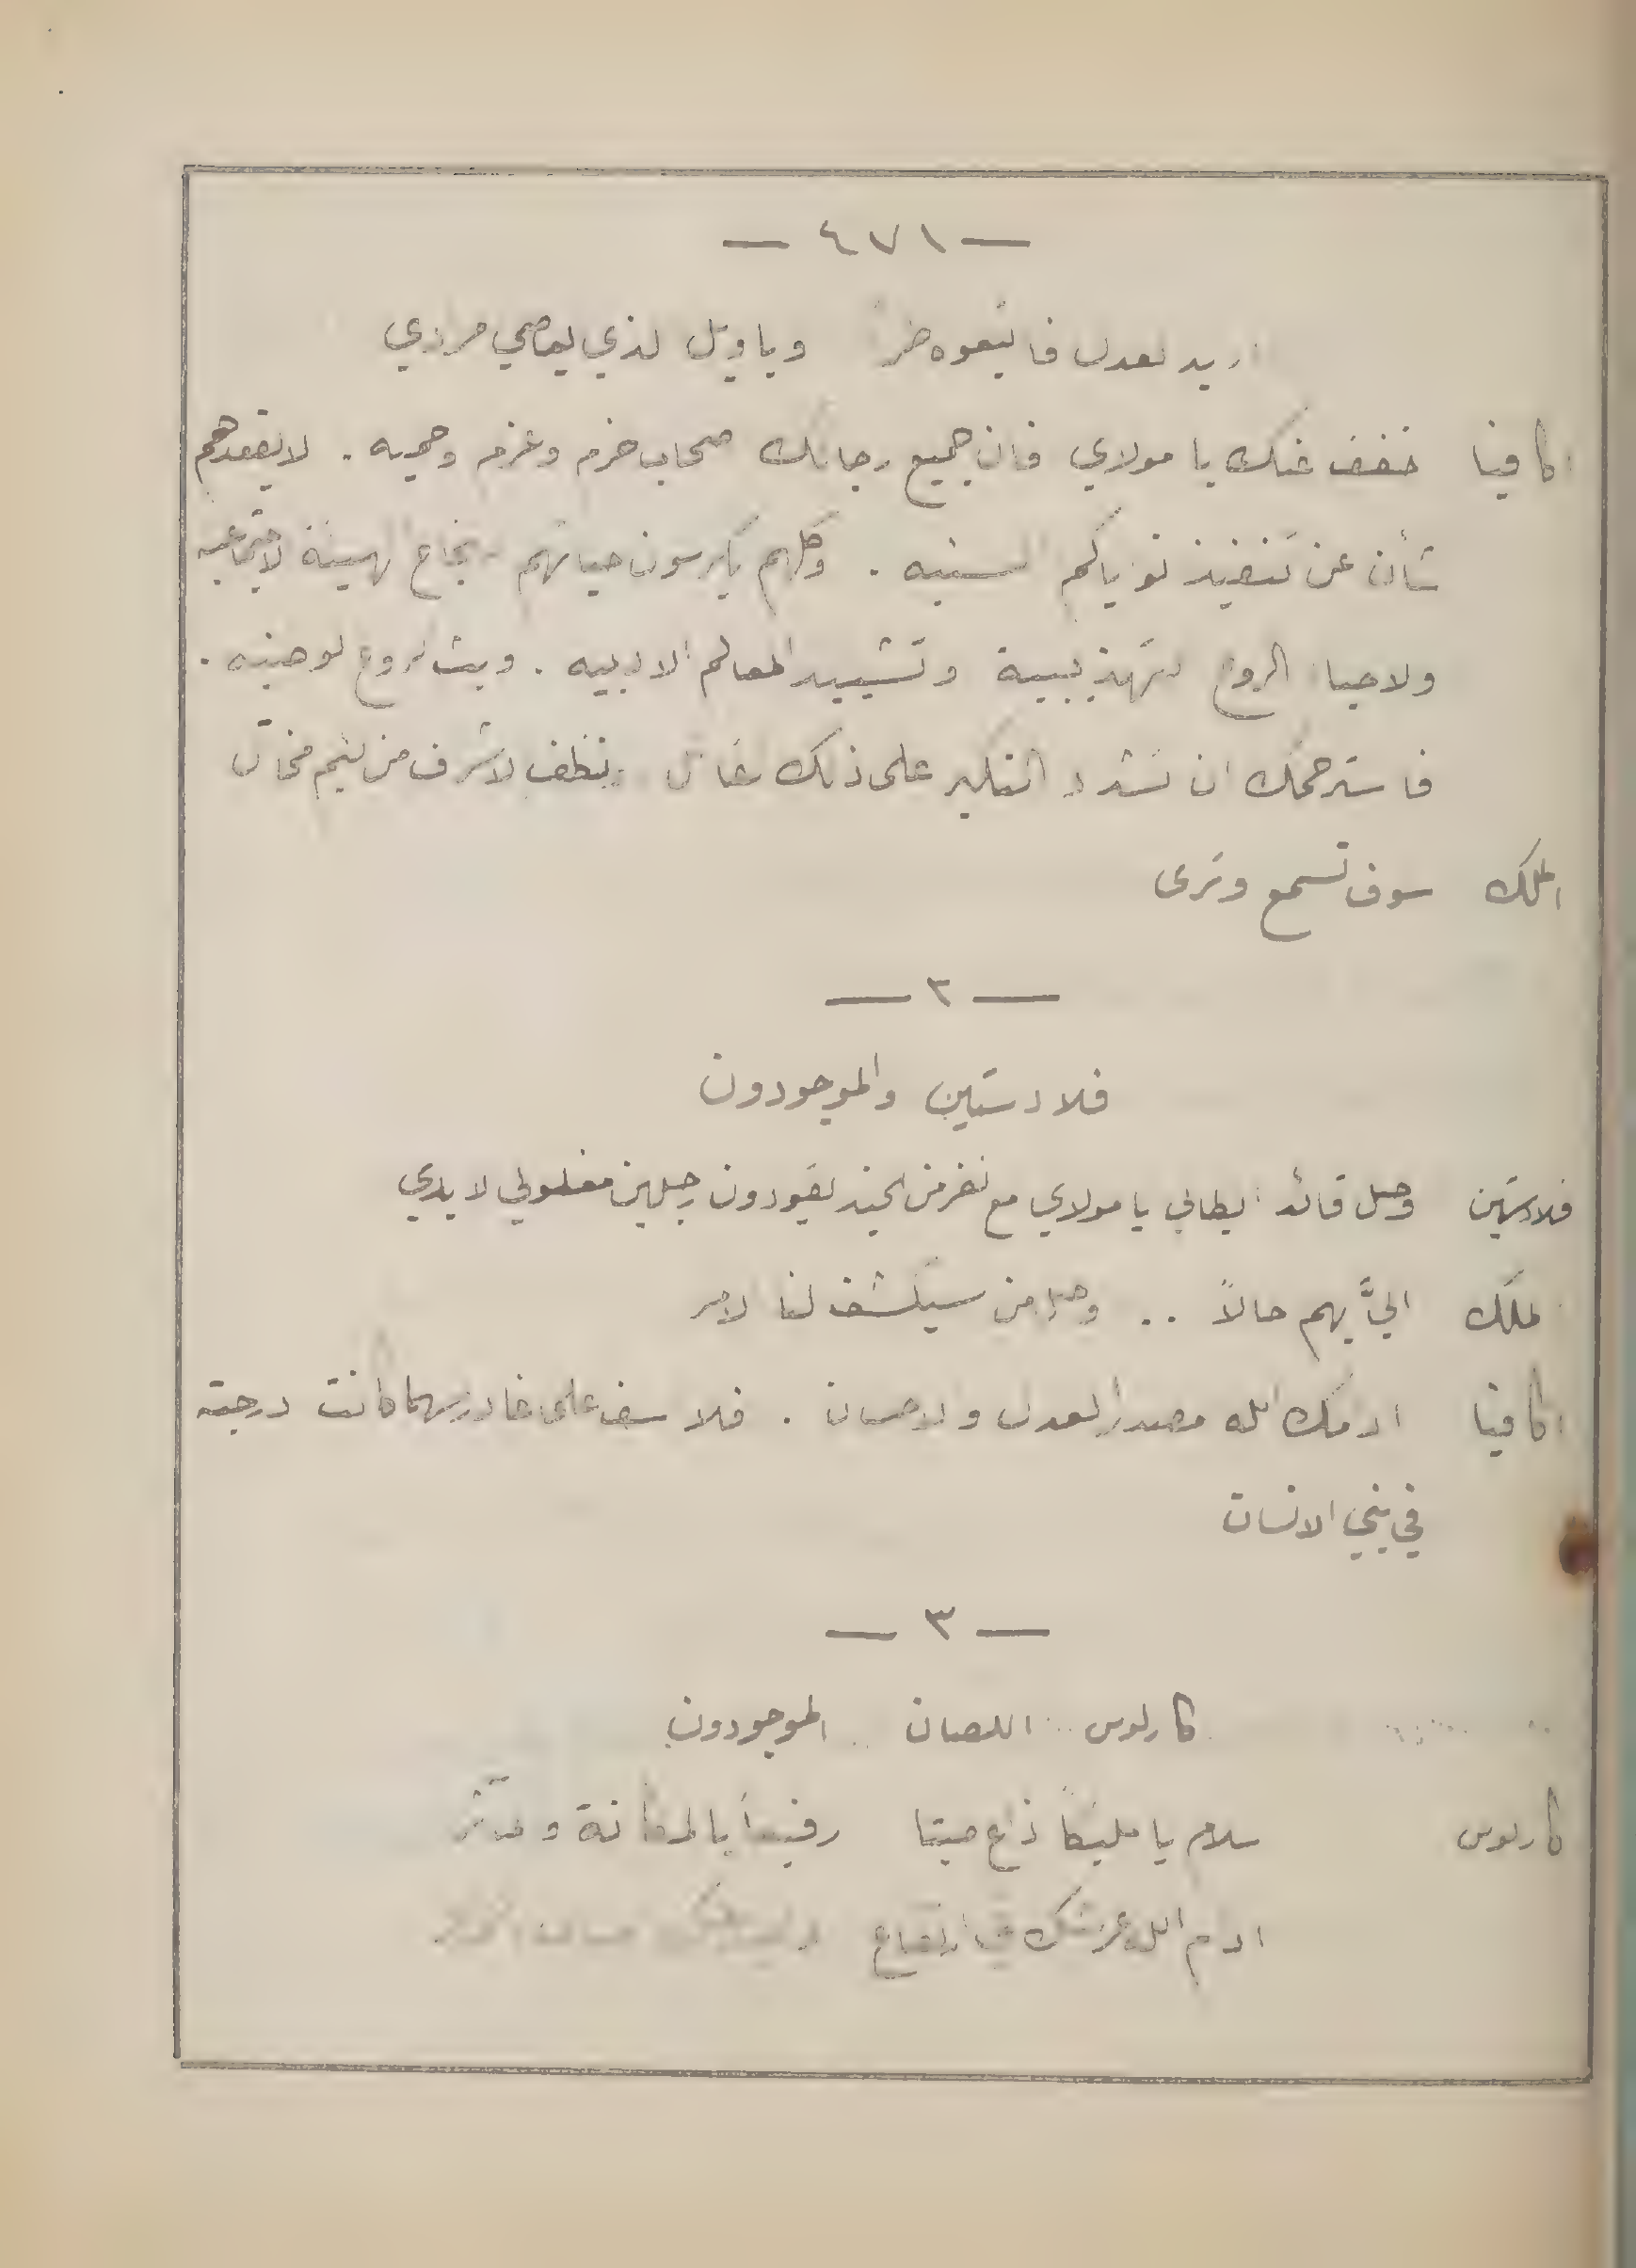 — ٤٧١ —
اريد العدل فاتبعوه طرا وياويل الذي يعصي مرادي
اكافيا خفف عنك يا مولاي فان جميع رجالك اصحاب حزم وعزم وحميه . لا يقعدهم
شأن عن تنفيذ نواياكم السنيه . وكلهم يكرسون حياتهم لنجاح الهيئة الاجتماعيه
ولاحياء الروح التهذيبية وتشييد المعالم الادبيه . وبث الروح الوطنيه .
فاسترحمك ان تشدد النكير على ذلك لينظف الاشرف من لئيم مختال
الملك سوف تسمع وترى
— ٢ —
فلادستين والموجودون
فلادستين وصل قائد ايطالي يا مولاي مع نفر من الجند يقودون رجلين مغلولي الايدي
الملك اليَّ بهم حالاً .. وصل من سيكشف لنا الامر
اكافيا ادامك الله مصدر العدل والاحسان . فلا اسف على غادر مهما كانت درجته
في بني الانسان
— ٣ —
كارلوس اللصان الموجودون
كارلوس سلام يا مليكاً ذاع صيتا رفيعاً بالمكانة و
ادام الله عرشك في ارتفاع